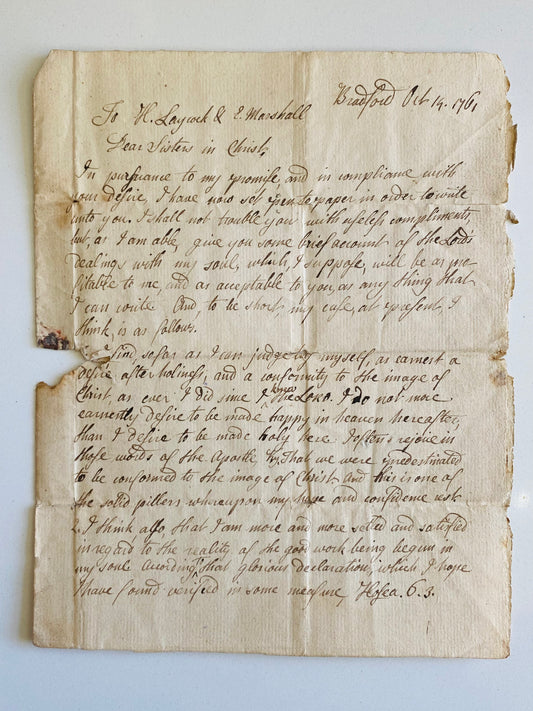 Bradford Oct 14. 1761
To H. Laycock & E. Marshall
Dear Sisters in Christ,
In pursuance to my promise, and in compliance with
your desire, I have now set pen to paper in order to write
unto you. I shall not trouble you with useless compliments,
but, as I am able, give you some brief account of the Lord's
dealings with my soul, which, I suppose, will be as pro
fitable to me, and as acceptable to you, as any thing that
I can write. And, to be short, my case, at present, I
think, is as follows.
I find, so far as I can judge by myself, as earnest a
desire after Holiness, and a conformity to the image of
Christ, as ever I did since I knew the LORD. I do not more
earnently desire to be made happy in heaven hereafter,
than I desire to be made holy here. I often rejoice in
those words of the Apostle, That we were predestinated
to be conformed to the image of Christ. And this is one of
the solid pillers whereupon my hope and confidence rest.
2. I think also, that I am more and more setled and satisfied
in regard to the reality of the good work being begun in
my soul. Acording that glorious declaration, which, I hope
I have found verified in some measure, Hosea. 6. 3.